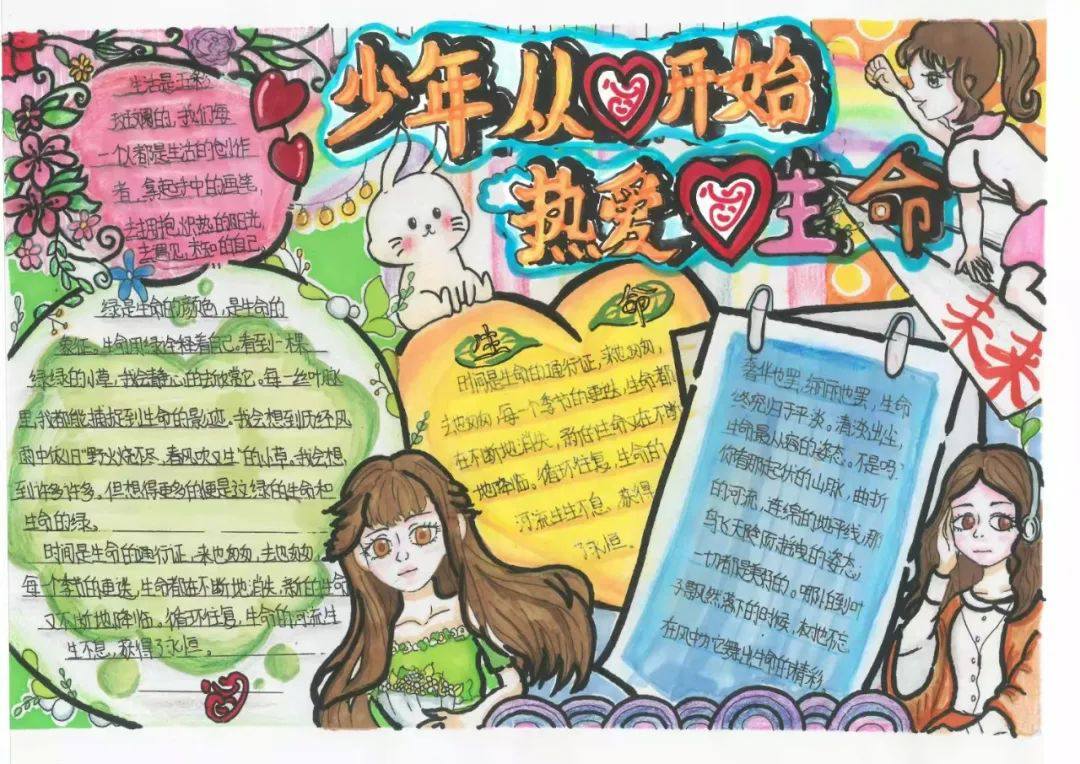 少年从开始
热爱生命
生活是五彩
斑斓的,我们每
一个人都是生活的创作
者,拿起手中的画笔,
去拥抱炽热的阳光,
去遇见未知的自己
未来
绿是生命的颜色,是生命的
象征。生命用绿诠释着自己。看到一棵
绿绿的小草,我会静心的去欣赏它。每一丝叶脉
里,我都能捕捉到生命的影迹。我会想到历经风
雨中依旧“野火烧不尽,春风吹又生”的小草。我会想
到许多许多。但想得更多的便是这绿的生命和
生命的绿。
时间是生命的通行证,来也匆匆,去也匆匆,
每一个季节的更迭,生命都在不断地消失,新的生命
又不断地降临。循环往复,生命的河流生
生不息,获得了永恒。
生命
时间是生命的通行证,来也匆匆,
去也匆匆,每一个季节的更迭,生命都
在不断地消失,新的生命又在不断
地降临。循环往复,生命的
河流生生不息,获得
了永恒。
奢华也罢,绚丽也罢,生命
终究归于平淡。清淡出尘,
生命最从容的姿态。不是吗?
你看那起伏的山脉,曲折
的河流,连绵的地平线,那
鸟飞天际而超拔的姿态,
一切都是美好的。哪怕到叶
子飘然落下的时候,权也不忘
在风中为它舞出生命的精彩